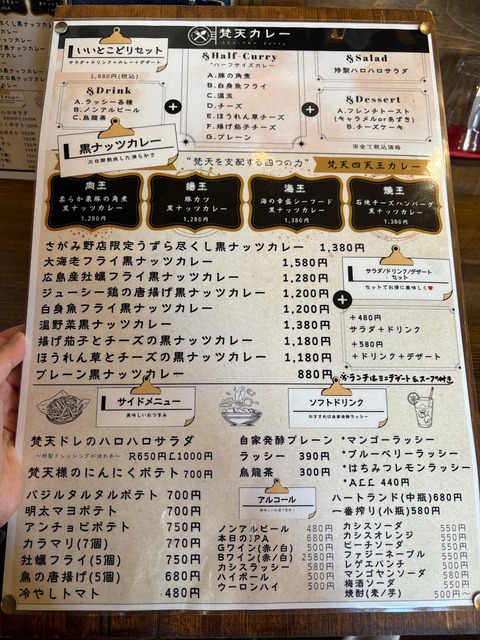 梵天カレー
いいとこどりセット
サラダ+ドリンク+カレー+デザート
1,680円(税込)
&Drink
A.ラッシー各種
B.ノンアルビール
C.烏龍茶
&Half-Curry
*ハーフサイズカレー
A.豚の角煮
B.白身魚フライ
C.温玉
D.チーズ
E.ほうれん草チーズ
F.揚げ茄子チーズ
G.プレーン
&Salad
特製ハロハロサラダ
&Dessert
A.フレンチトースト
(キャラメルorあずき)
B.チーズケーキ
※全て税込価格
黒ナッツカレー
三日間熟成した滑らかさ
"梵天を支配する四つの力"
梵天四天王カレー
肉王
柔らか豪豚の角煮
黒ナッツカレー
1,280円
豚王
豚カツ
黒ナッツカレー
1,280円
海王
海の幸盛シーフード
黒ナッツカレー
1,380円
焼王
石焼チーズハンバーグ
黒ナッツカレー
1,380円
さがみ野店限定うずら尽くし黒ナッツカレー 1,380円
大海老フライ黒ナッツカレー 1,580円
広島産牡蠣フライ黒ナッツカレー 1,280円
ジューシー鶏の唐揚げ黒ナッツカレー 1,200円
白身魚フライ黒ナッツカレー 1,200円
温野菜黒ナッツカレー 1,380円
揚げ茄子とチーズの黒ナッツカレー 1,180円
ほうれん草とチーズの黒ナッツカレー 1,180円
プレーン黒ナッツカレー 880円
サラダ/ドリンク/デザート
セット
セットでお得に美味しく♥
+480円
サラダ+ドリンク
+580円
+ドリンク+デザート
※ランチはミニデザート&スープ付き
サイドメニュー
美味しいおつまみ
梵天ドレのハロハロサラダ
~特製ドレッシングが決め手~ R650円L1000円
梵天様のにんにくポテト 700円
バジルタルタルポテト 700円
明太マヨポテト 700円
アンチョビポテト 750円
カラマリ(7個) 770円
牡蠣フライ(5個) 750円
鳥の唐揚げ(5個) 680円
冷やしトマト 480円
ソフトドリンク
おすすめは自家発酵ラッシー
自家発酵プレーン
ラッシー 390円
烏龍茶 300円
*マンゴーラッシー
*ブルーベリーラッシー
*はちみつレモンラッシー
*ALL 440円
アルコール
ハートランド(中瓶)680円
一番搾り(小瓶)580円
ノンアルビール 480円
本日のIPA 680円
Gワイン(赤/白) 500円
Bワイン(赤/白) 2580円
カシスラッシー 580円
ハイボール 500円
ウーロンハイ 500円
カシスソーダ 550円
カシスオレンジ 550円
ピーチソーダ 550円
ファジーネーブル 550円
レゲエパンチ 500円
マンゴヤンソーダ 580円
梅酒ソーダ 550円
焼酎(麦/芋) 500円~